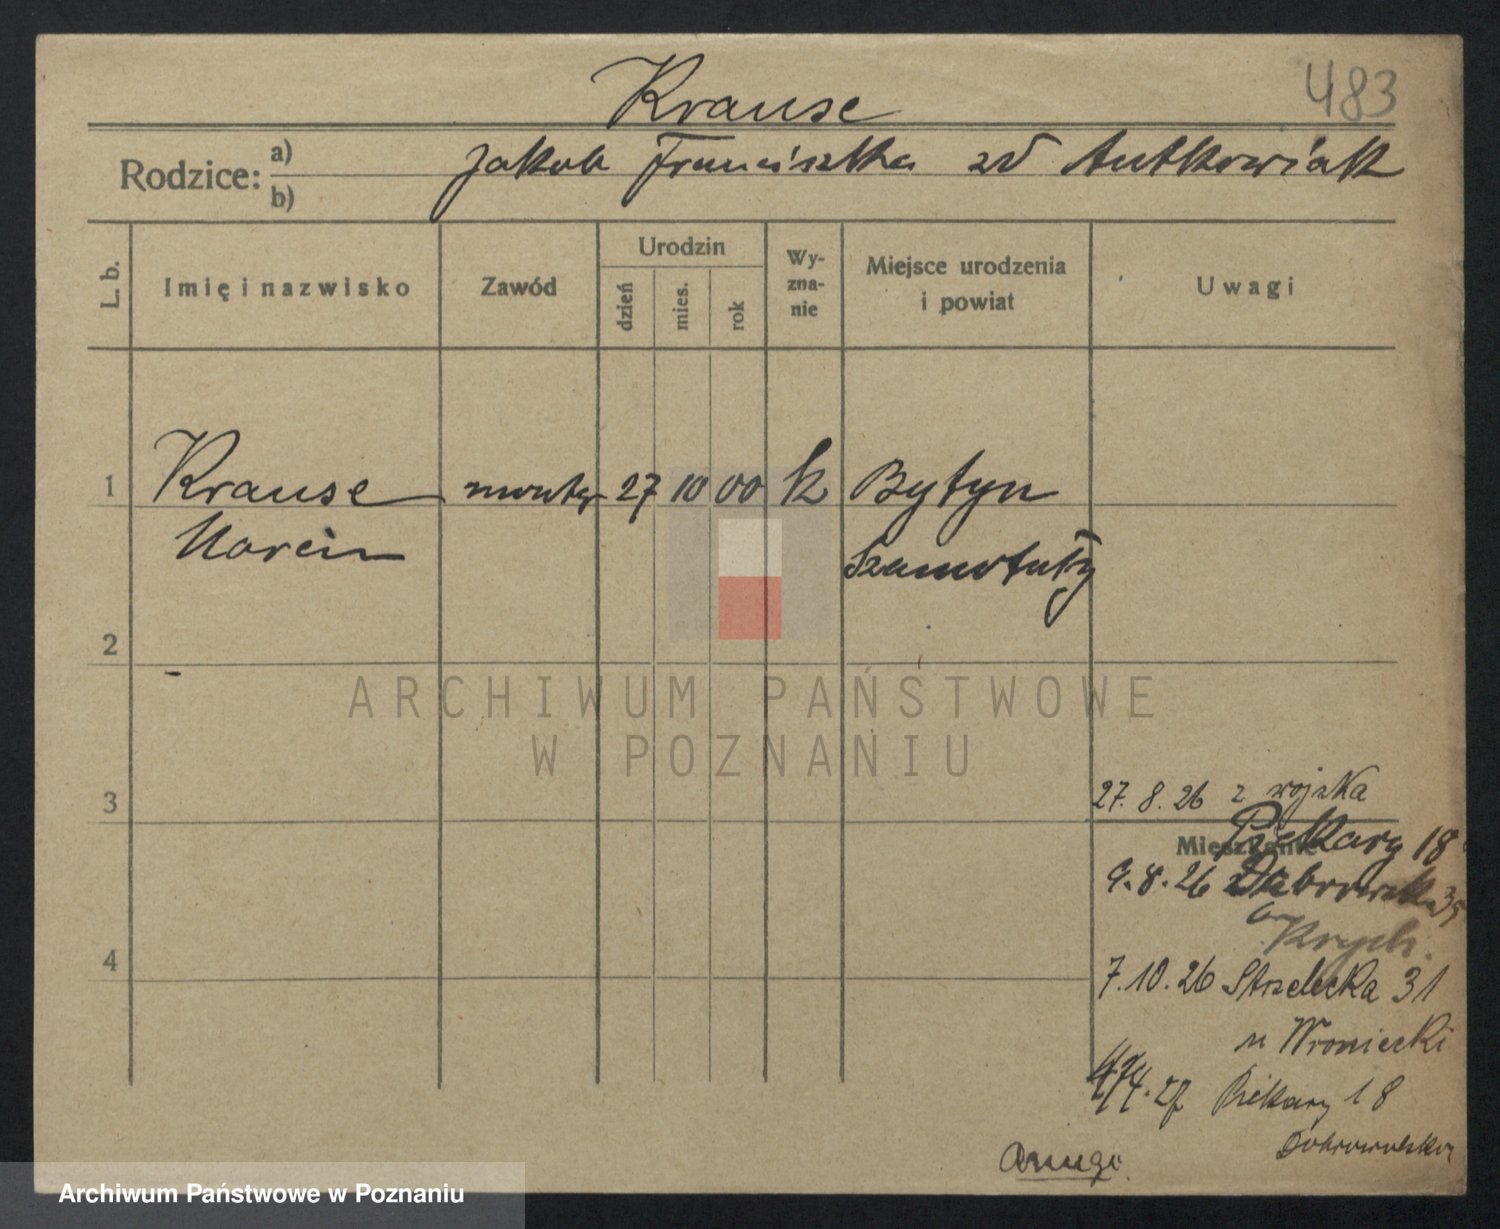 Krause
483
Rodzice: a) b)
Jakób Franciszka zd Antkowiak
L. b.
Imię i nazwisko
Zawód
Urodzin
dzień
mies.
rok
Wy-
zna-
nie
Miejsce urodzenia
i powiat
Uwagi
1 Krause monter 27 10 00 k Bytyn
Marcin
Szamotuły
2
3
4
27. 8. 26 z wojska
Mieszkanie
Piekary 18
9. 8. 26 Dąbrowska 35
Krych.
7. 10. 26 Strzelecka 31
u Wroniecki
Piekary 18
Dobrowolska
ARCHIWUM PAŃSTWOWE
W POZNANIU
Archiwum Państwowe w Poznaniu